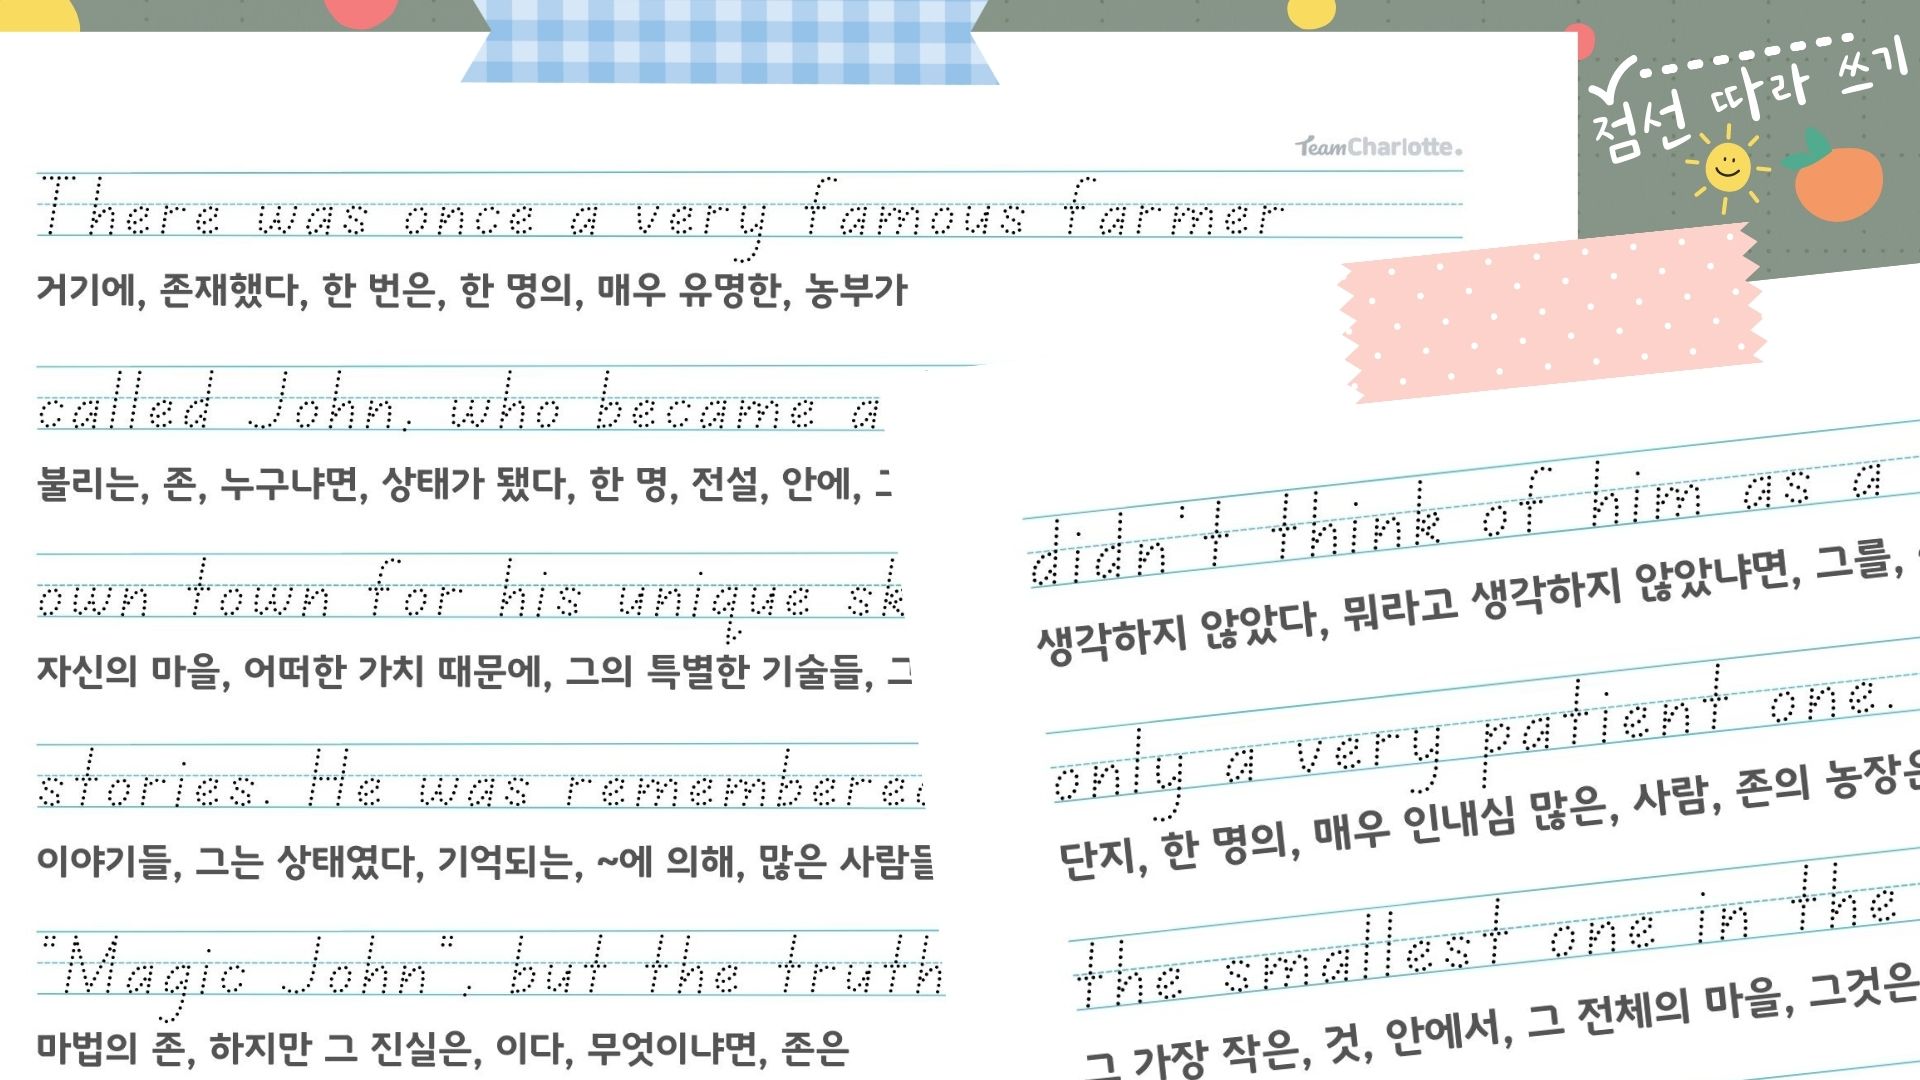 점선 따라 쓰기
TeamCharlotte.
There was once a very famous farmer
거기에, 존재했다, 한 번은, 한 명의, 매우 유명한, 농부가
called John, who became a
불리는, 존, 누구냐면, 상태가 됐다, 한 명, 전설, 안에,
own town for his unique sk
자신의 마을, 어떠한 가치 때문에, 그의 특별한 기술들, 그
stories. He was remembere
이야기들, 그는 상태였다, 기억되는, ~에 의해, 많은 사람들
"Magic John", but the truth
마법의 존, 하지만 그 진실은, 이다, 무엇이냐면, 존은
didn't think of him as a
생각하지 않았다, 뭐라고 생각하지 않았냐면, 그를,
only a very patient one.
단지, 한 명의, 매우 인내심 많은, 사람, 존의 농장은
the smallest one in the
그 가장 작은, 것, 안에서, 그 전체의 마을, 그것은